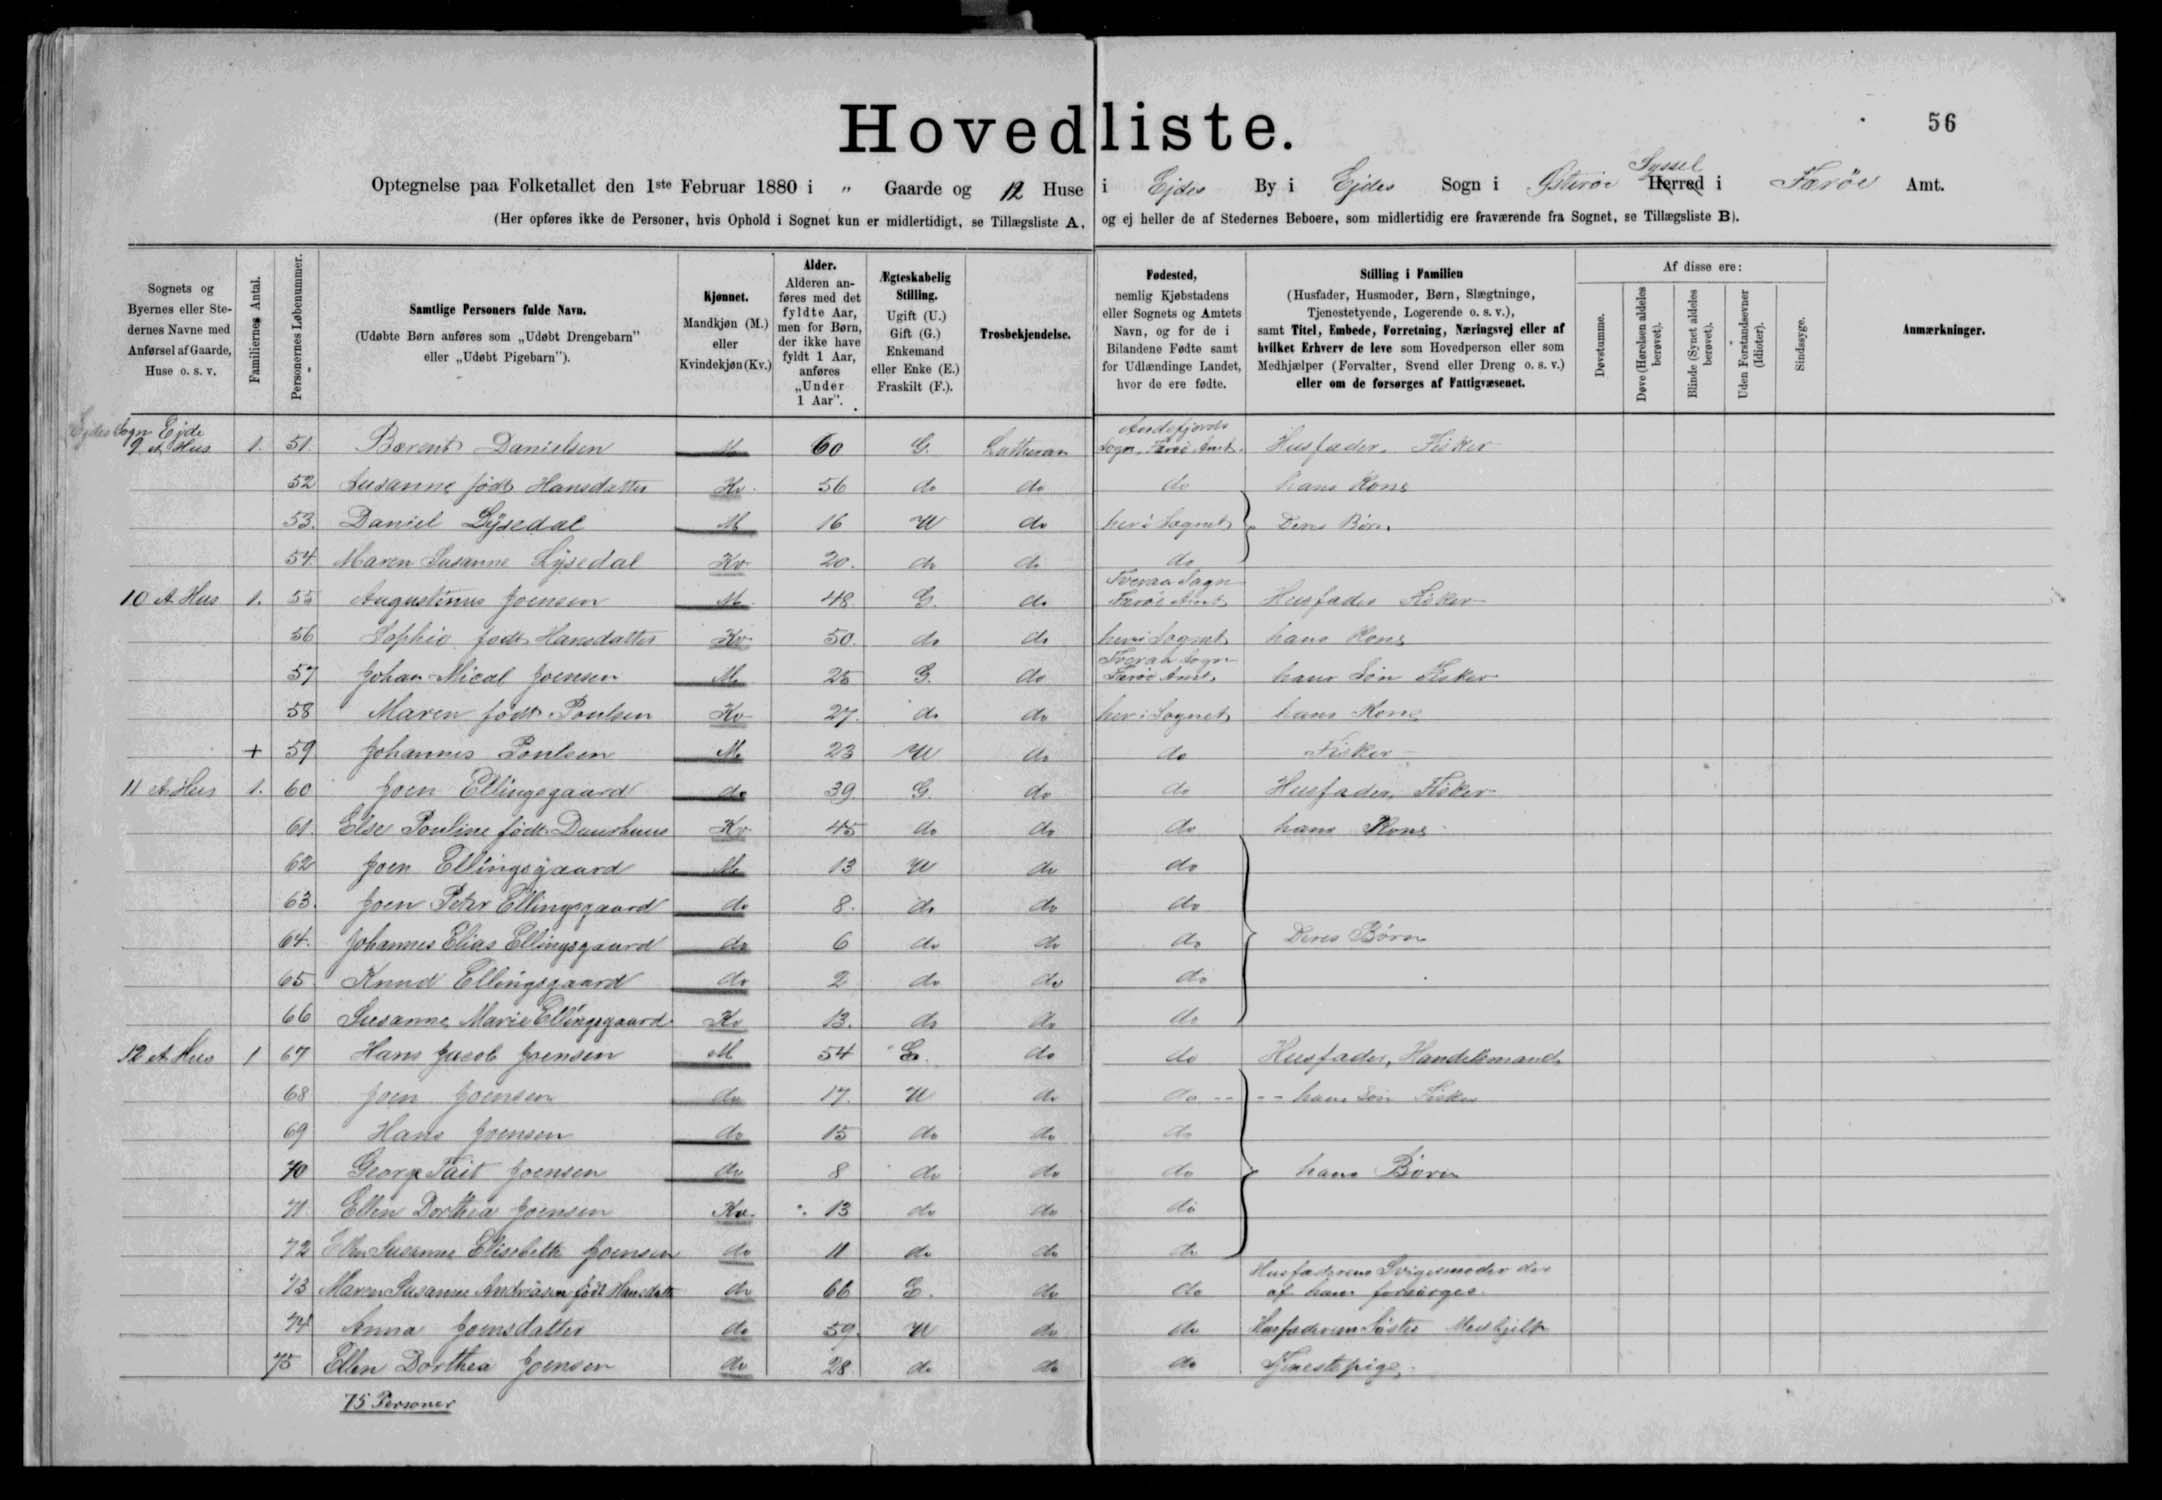 Hovedliste.
56
Optegnelse paa Folketallet den 1ste Februar 1880 i " Gaarde og 12 Huse i Ejdes By i Ejdes Sogn i Østerøe Syssel Herred i Færöe Amt.
(Her opføres ikke de Personer, hvis Ophold i Sognet kun er midlertidigt, se Tillægsliste A, og ej heller de af Stedernes Beboere, som midlertidig ere fraværende fra Sognet, se Tillægsliste B).
Sognets og Byernes eller Stedernes Navne med Anførsel af Gaarde, Huse o. s. v.
Familiernes Antal.
Personernes Løbenummer.
Samtlige Personers fulde Navn.
(Udøbte Børn anføres som „Udøbt Drengebarn" eller „Udøbt Pigebarn").
Kjønnet.
Mandkjøn (M.) eller Kvindekjøn (Kv.)
Alder.
Alderen anføres med det fyldte Aar, men for Børn, der ikke have fyldt 1 Aar, anføres „Under 1 Aar".
Ægteskabelig Stilling.
Ugift (U.) Gift (G.) Enkemand eller Enke (E.) Fraskilt (F.).
Trosbekjendelse.
Fødested,
nemlig Kjøbstadens eller Sognets og Amtets Navn, og for de i Bilandene Fødte samt for Udlændinge Landet, hvor de ere fødte.
Stilling i Familien
(Husfader, Husmoder, Børn, Slægtninge, Tjenestetyende, Logerende o. s. v.),
samt Titel, Embede, Forretning, Næringsvej eller af hvilket Erhverv de leve som Hovedperson eller som Medhjælper (Forvalter, Svend eller Dreng o. s. v.) eller om de forsørges af Fattigvæsenet.
Af disse ere:
Døvstumme.
Døve (Hørelsen aldeles berøvet).
Blinde (Synet aldeles berøvet).
Uden Forstandsevner (Idioter).
Sindssyge.
Anmærkninger.
Ejdes Sogn Ejde
9 et Hus 1. 51. Barent Danielsen M 60 G. Lutheran Andefjords Sogn, Færöe Amt. Husfader, Fisker
52 Susanne født Hansdatter Kv. 56 do do do hans Kone
53. Daniel Lysedal M 16 U do her i Sognet } Deres Börn
54. Maren Susanne Lysedal Kv 20. do do do
10 et Hus 1. 55 Augustinus Joensen M 48. G. do Tveraa Sogn Færöe Amt Husfader Fisker
56 Sophie født Hansdatter Kv 50. do do her i Sognet hans Kone
57 Johan Mical Joensen M 25 G. do Tveraa Sogn Færöe Amt. hans Sön Fisker
58 Maren født Poulsen Kv 27. do do her i Sognet hans Kone
+ 59 Johannes Poulsen M 23 U do do Fisker
11 et Hus 1. 60 Joen Ellingsgaard do 39. G. do do Husfader, Fisker
61. Else Pouline født Duurhuus Kv 45 do do do hans Kone
62 Joen Ellingsgaard M 13 U do do
63. Joen Peter Ellingsgaard do 8. do do do
64. Johannes Elias Ellingsgaard do 6 do do do Deres Börn
65 Knud Ellingsgaard do 2 do do do
66 Susanne Marie Ellingsgaard Kv 13. do do do
12 et Hus 1 67 Hans Jacob Joensen M 54 E. do do Husfader, Handelsmand
68 Joen Joensen do 17. U do do -- -- hans Sön Fisker
69 Hans Joensen do 15 do do do
70 Georg Tait Joensen do 8 do do do hans Börn
71 Ellen Dorthea Joensen Kv. 13 do do do
72 Ellen Susanne Elisebeth Joensen do 11 do do do
73 Maren Susanne Andreasen født Hansdatt do 66 E. do do Husfaderens Svigermoder der af ham forsörges
74 Anna Joensdatter do 59. U do do Husfaderens Söster Medhjelp
75 Ellen Dorthea Joensen do 28. do do do Tjenestepige.
75 Personer